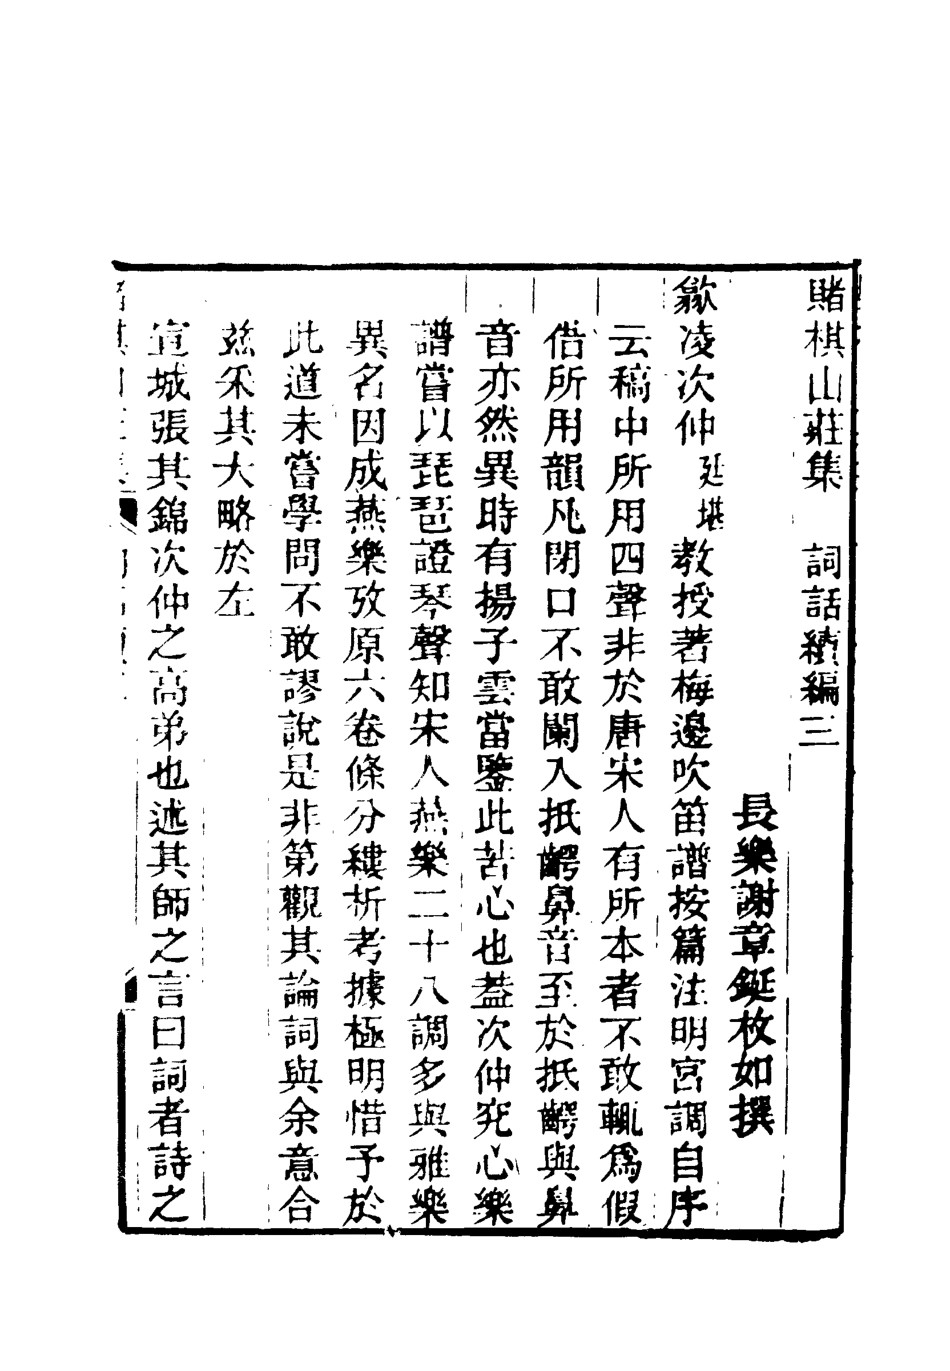 賭棋山莊集　詞話續編三
長樂謝章鋌枚如撰
歙凌次仲廷堪教授著梅邊吹笛譜按篇注明宮調自序
云稿中所用四聲非於唐宋人有所本者不敢輒爲假
借所用韻凡閉口不敢闌入抵齶鼻音至於抵齶與鼻
音亦然異時有揚子雲當鑒此苦心也蓋次仲究心樂
譜嘗以琵琶證琴聲知宋人燕樂二十八調多與雅樂
異名因成燕樂攷原六卷條分縷析考據極明惜予於
此道未嘗學問不敢謬說是非第觀其論詞與余意合
茲采其大略於左
宣城張其錦次仲之高弟也述其師之言曰詞者詩之